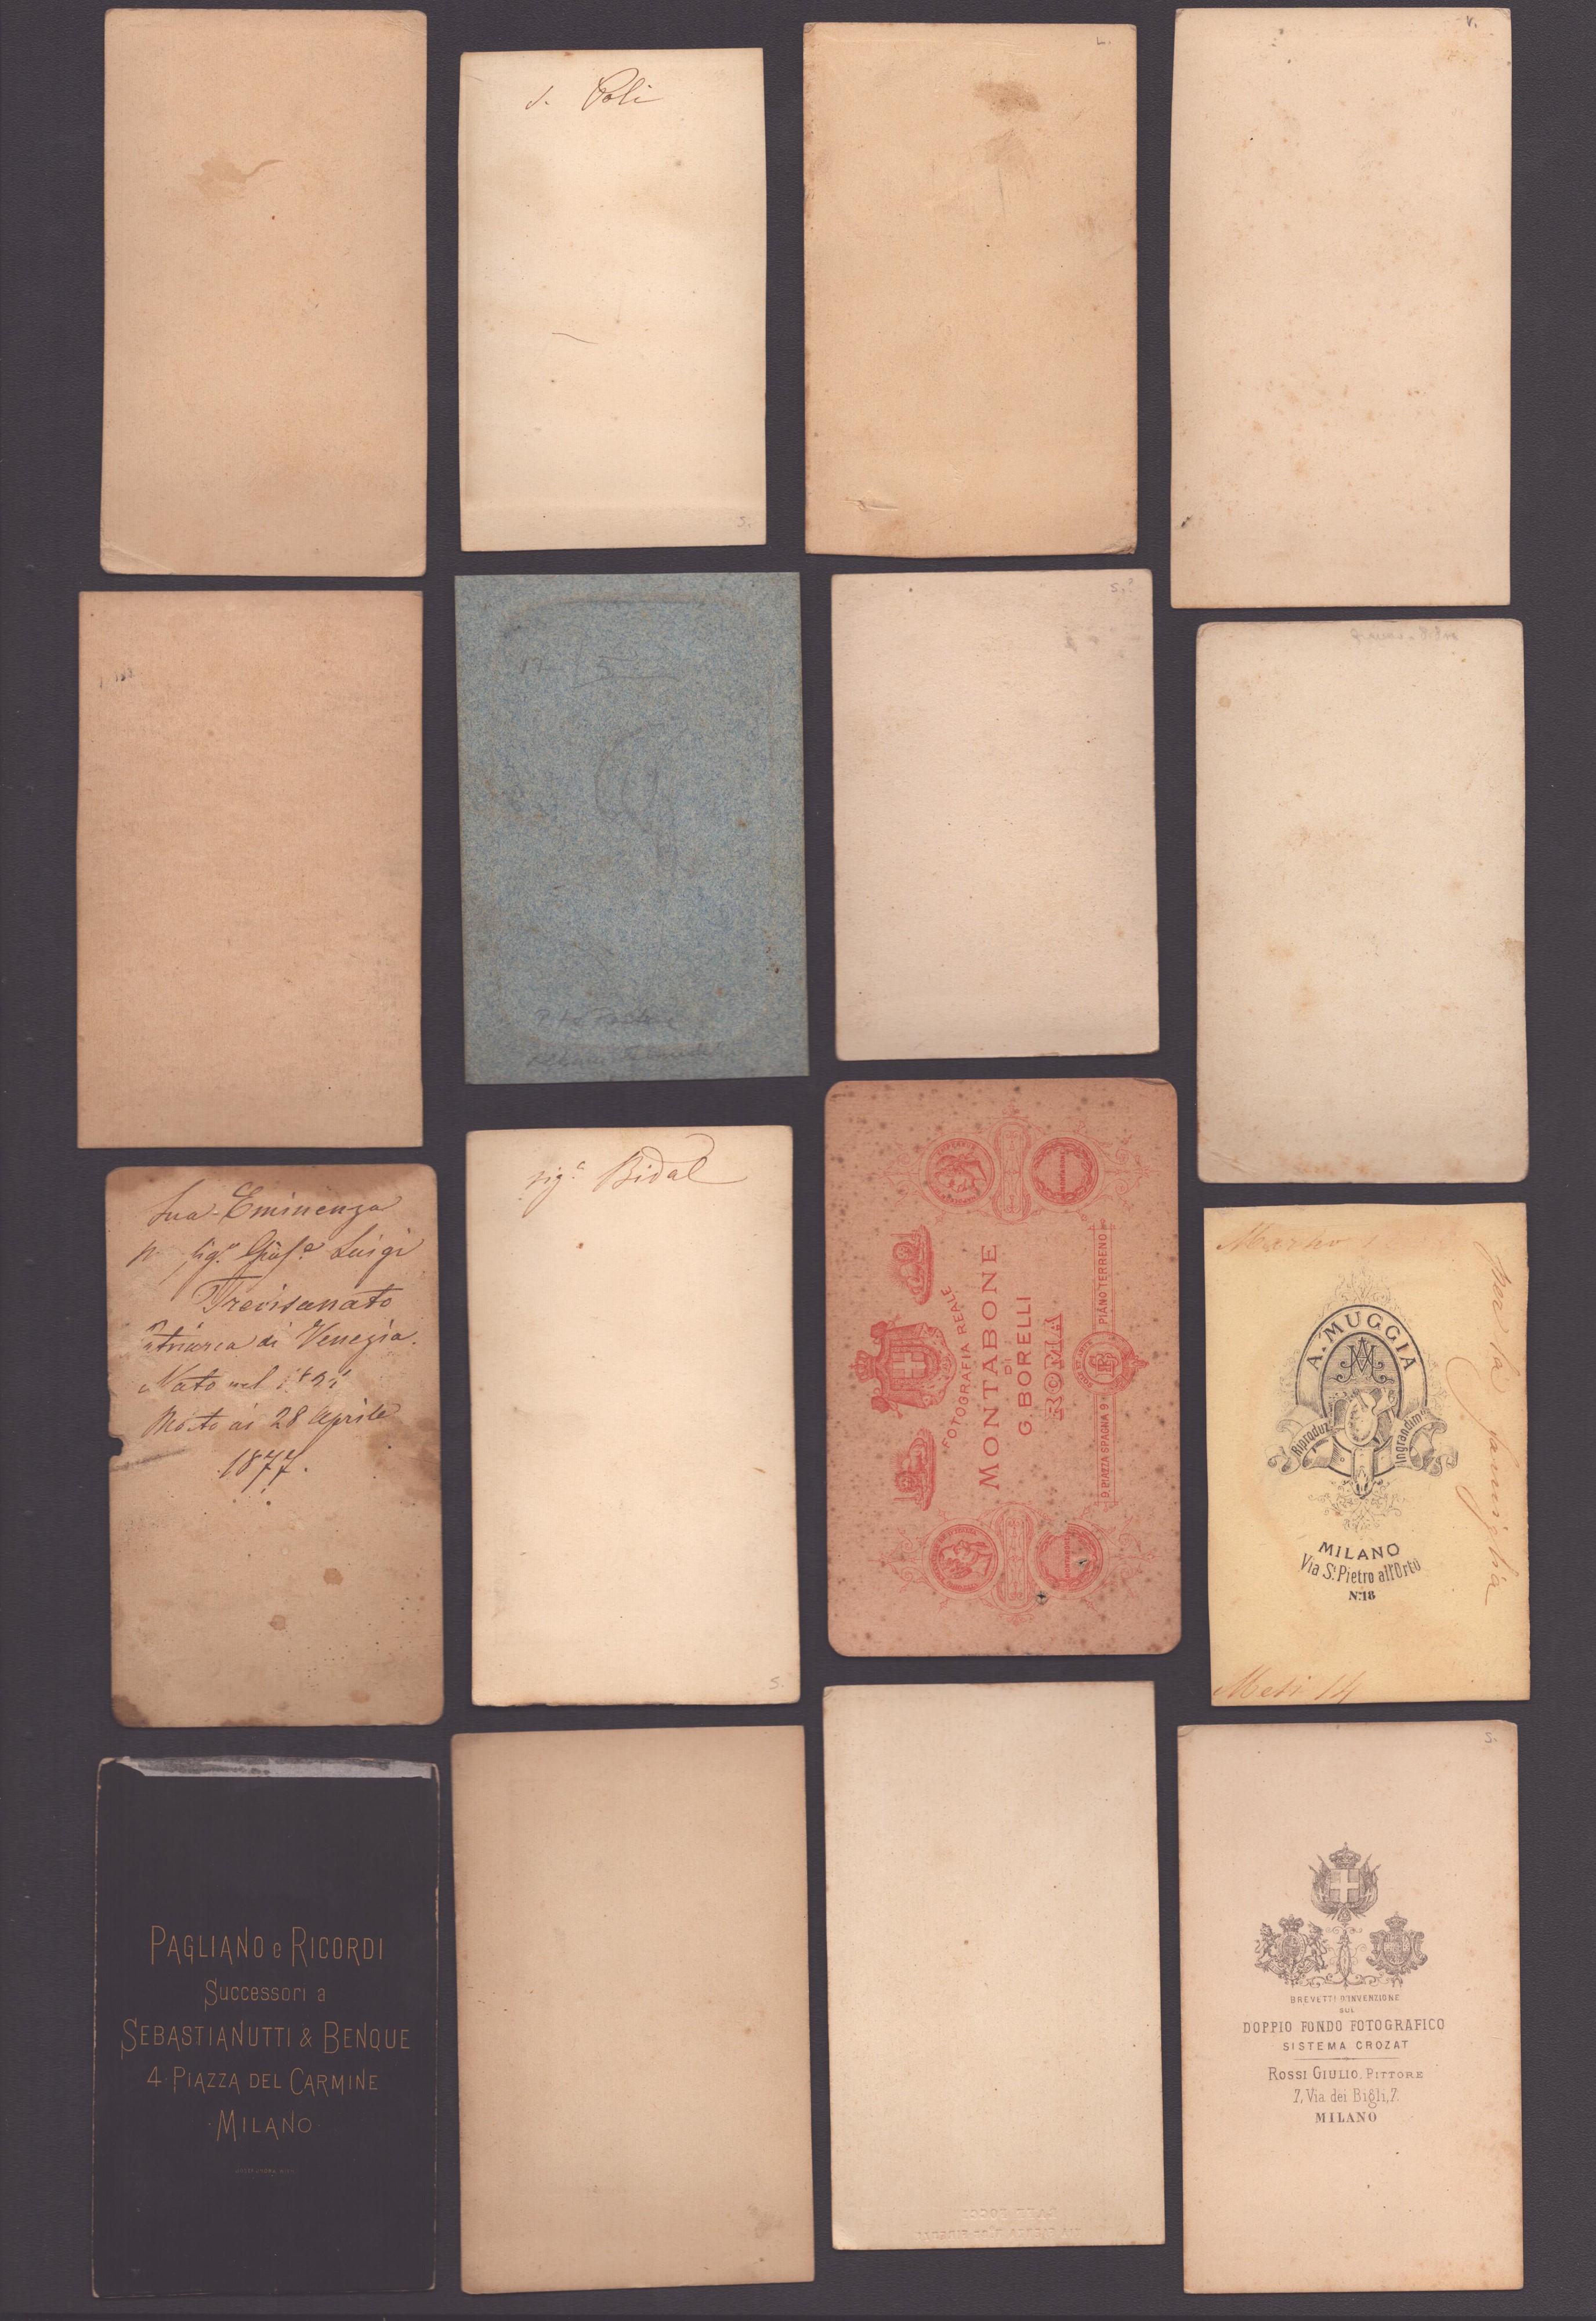 s. Poli
S.
L.
V.
S.
Sua Eminenza
Luigi
Trevisanato
di Venezia.
Nato nel
Morto ai 28 Aprile
1877.
sig.a Bidal
S.
FOTOGRAFIA REALE
MONTABONE
DI
G. BORELLI
ROMA
9 PIAZZA SPAGNA 9
PIANO TERRENO
Marno
per la famiglia
A. MUGGIA
Riproduz.
Ingrandim.
MILANO
Via S. Pietro all'Orto
N. 18
Mesi 14
PAGLIANO e RICORDI
Successori a
SEBASTIANUTTI & BENQUE
4 · PIAZZA DEL CARMINE
· MILANO ·
S.
BREVETTI D'INVENZIONE
SUL
DOPPIO FONDO FOTOGRAFICO
SISTEMA CROZAT
ROSSI GIULIO, PITTORE
7, Via dei Bigli, 7.
MILANO